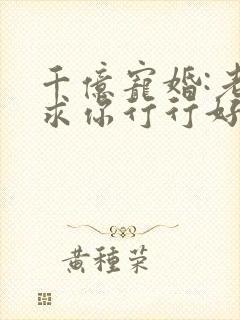 千億寵婚:老
求你行行好
黃種榮